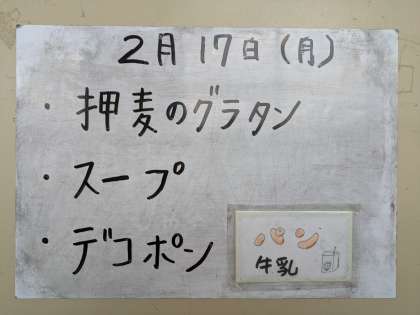 2月17日(月)
・押麦のグラタン
・スープ
・デコポン
パン
牛乳